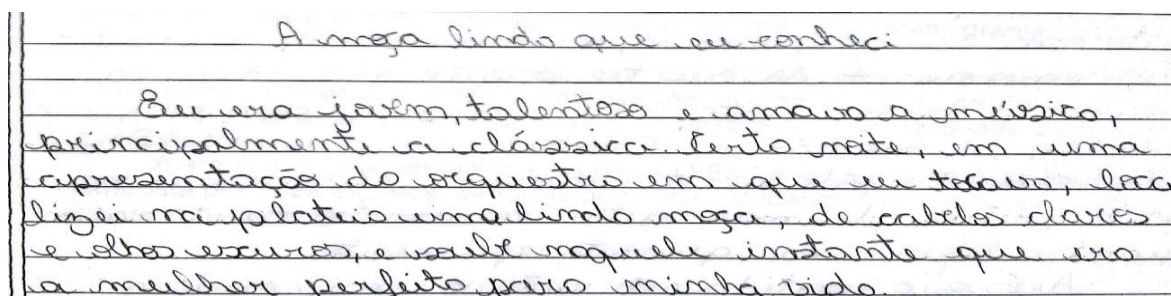 A moça linda que eu conheci
Eu era jovem, talentoso e amava a música,
principalmente a clássica. Certa noite, em uma
apresentação da orquestra em que eu tocava, loca
lizei na plateia uma linda moça, de cabelos claros
e olhos escuros, e soube naquele instante que era
a mulher perfeita para minha vida.